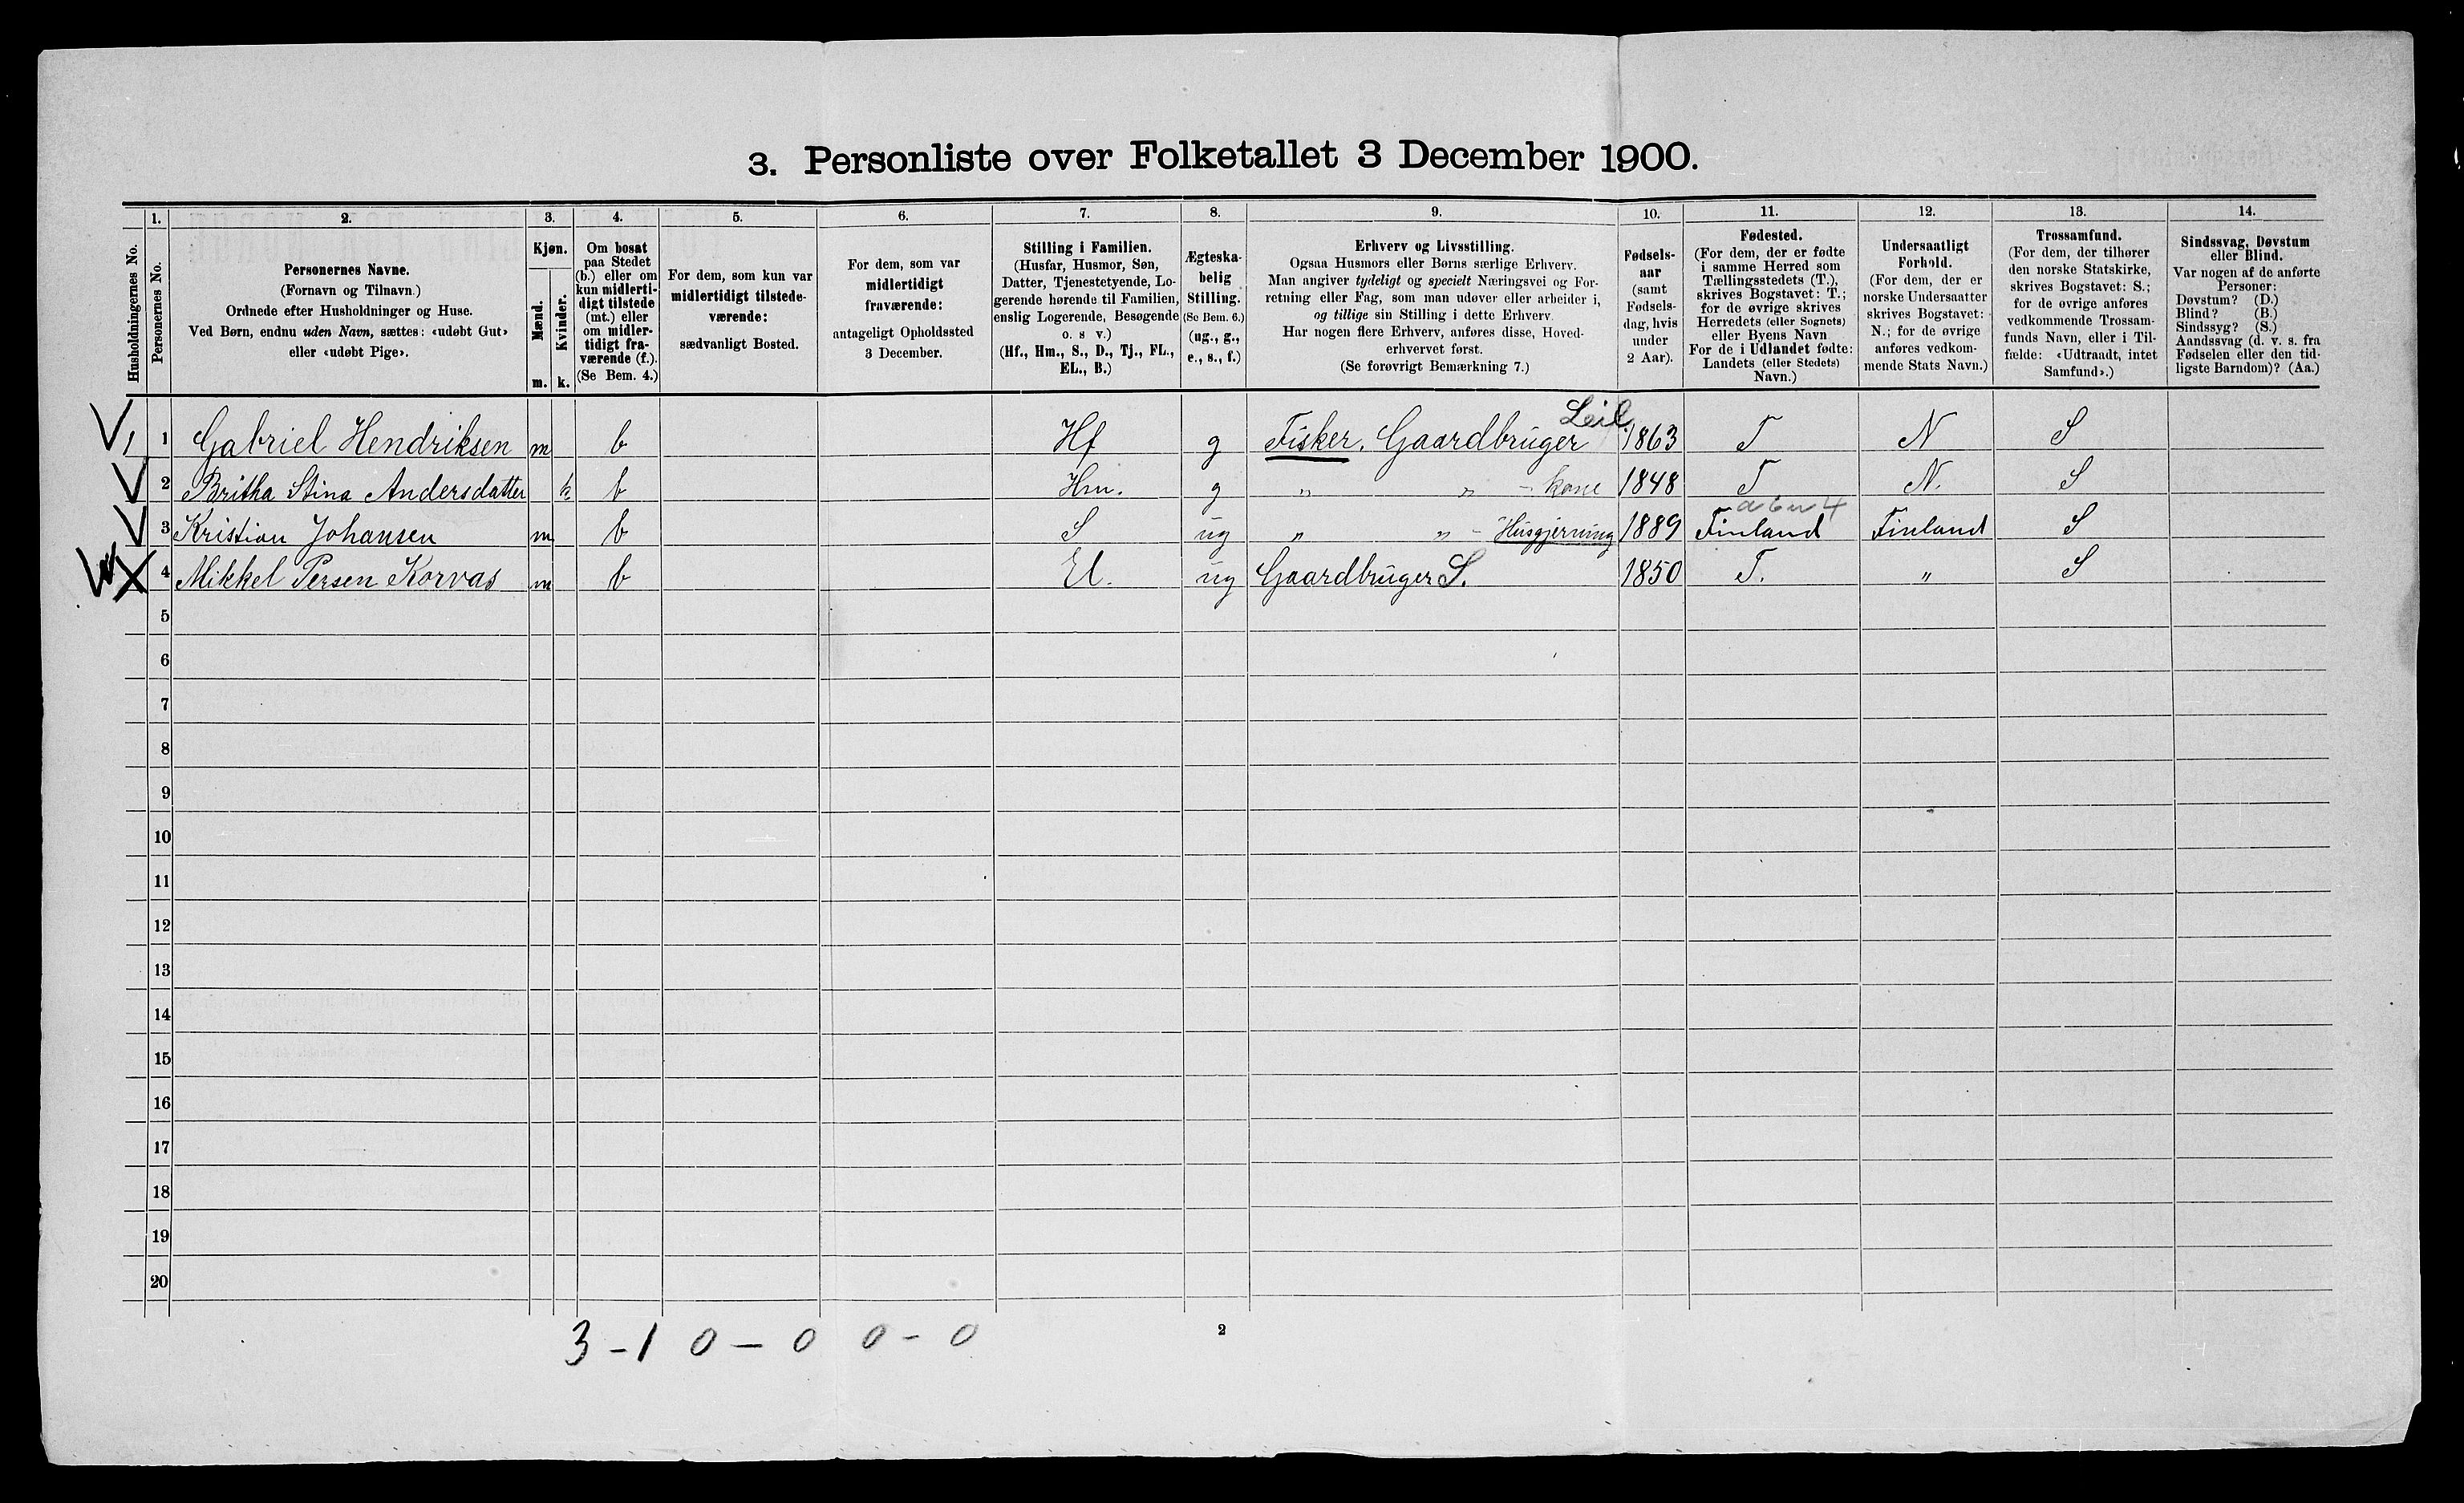 3. Personliste over Folketallet 3 December 1900.
Husholdningernes No.
1.
Personernes No.
2.
Personernes Navne.
(Fornavn og Tilnavn.)
Ordnede efter Husholdninger og Huse.
Ved Børn, endnu uden Navn, sættes: «udøbt Gut»
eller «udøbt Pige».
3.
Kjøn.
Mænd.
m.
Kvinder.
k.
4.
Om bosat
paa Stedet
(b.) eller om
kun midlerti-
digt tilstede
(mt.) eller
om midler-
tidigt fra-
værende (f.).
(Se Bem. 4.)
5.
For dem, som kun var
midlertidigt tilstede-
værende:
sædvanligt Bosted.
6.
For dem, som var
midlertidigt
fraværende:
antageligt Opholdssted
3 December.
7.
Stilling i Familien.
(Husfar, Husmor, Søn,
Datter, Tjenestetyende, Lo-
gerende hørende til Familien,
enslig Logerende, Besøgende
o. s v.)
(Hf., Hm., S., D., Tj., FL.,
EL., B.)
8.
Ægteska-
belig
Stilling.
(Se Bem. 6.)
(ug., g.,
e., s., f.)
9.
Erhverv og Livsstilling.
Ogsaa Husmors eller Børns særlige Erhverv.
Man angiver tydeligt og specielt Næringsvei og For-
retning eller Fag, som man udøver eller arbeider i,
og tillige sin Stilling i dette Erhverv.
Har nogen flere Erhverv, anføres disse, Hoved-
erhvervet først.
(Se forøvrigt Bemærkning 7.)
10.
Fødsels-
aar
(samt
Fødsels-
dag, hvis
under
2 Aar).
11.
Fødested.
(For dem, der er fødte
i samme Herred som
Tællingsstedets (T.),
skrives Bogstavet: T.;
for de øvrige skrives
Herredets (eller Sognets)
eller Byens Navn
For de i Udlandet fødte:
Landets (eller Stedets)
Navn.)
12.
Undersaatligt
Forhold.
(For dem, der er
norske Undersaatter
skrives Bogstavet:
N.; for de øvrige
anføres vedkom-
mende Stats Navn.)
13.
Trossamfund.
(For dem, der tilhører
den norske Statskirke,
skrives Bogstavet: S.;
for de øvrige anføres
vedkommende Trossam-
funds Navn, eller i Til-
fælde: «Udtraadt, intet
Samfund».)
14.
Sindssvag, Døvstum
eller Blind.
Var nogen af de anførte
Personer:
Døvstum? (D.)
Blind? (B.)
Sindssyg? (S.)
Aandssvag (d. v. s. fra
Fødselen eller den tid-
ligste Barndom)? (Aa.)
Leil
1 1 Gabriel Hendriksen m b Hf g Fisker, Gaardbruger 1863 T N S
2 Britha Stina Andersdatter k b Hm. g " " - kone 1848 T N. S
3 Kristian Johansen m b S ug " " - Husgjerning 1889 Finland Finland S
4 Mikkel Persen Korvas m b El. ug Gaardbruger S. 1850 T. " S
5
6
7
8
9
10
11
12
13
14
15
16
17
18
19
20
3 - 1 0 - 0 0 - 0
2